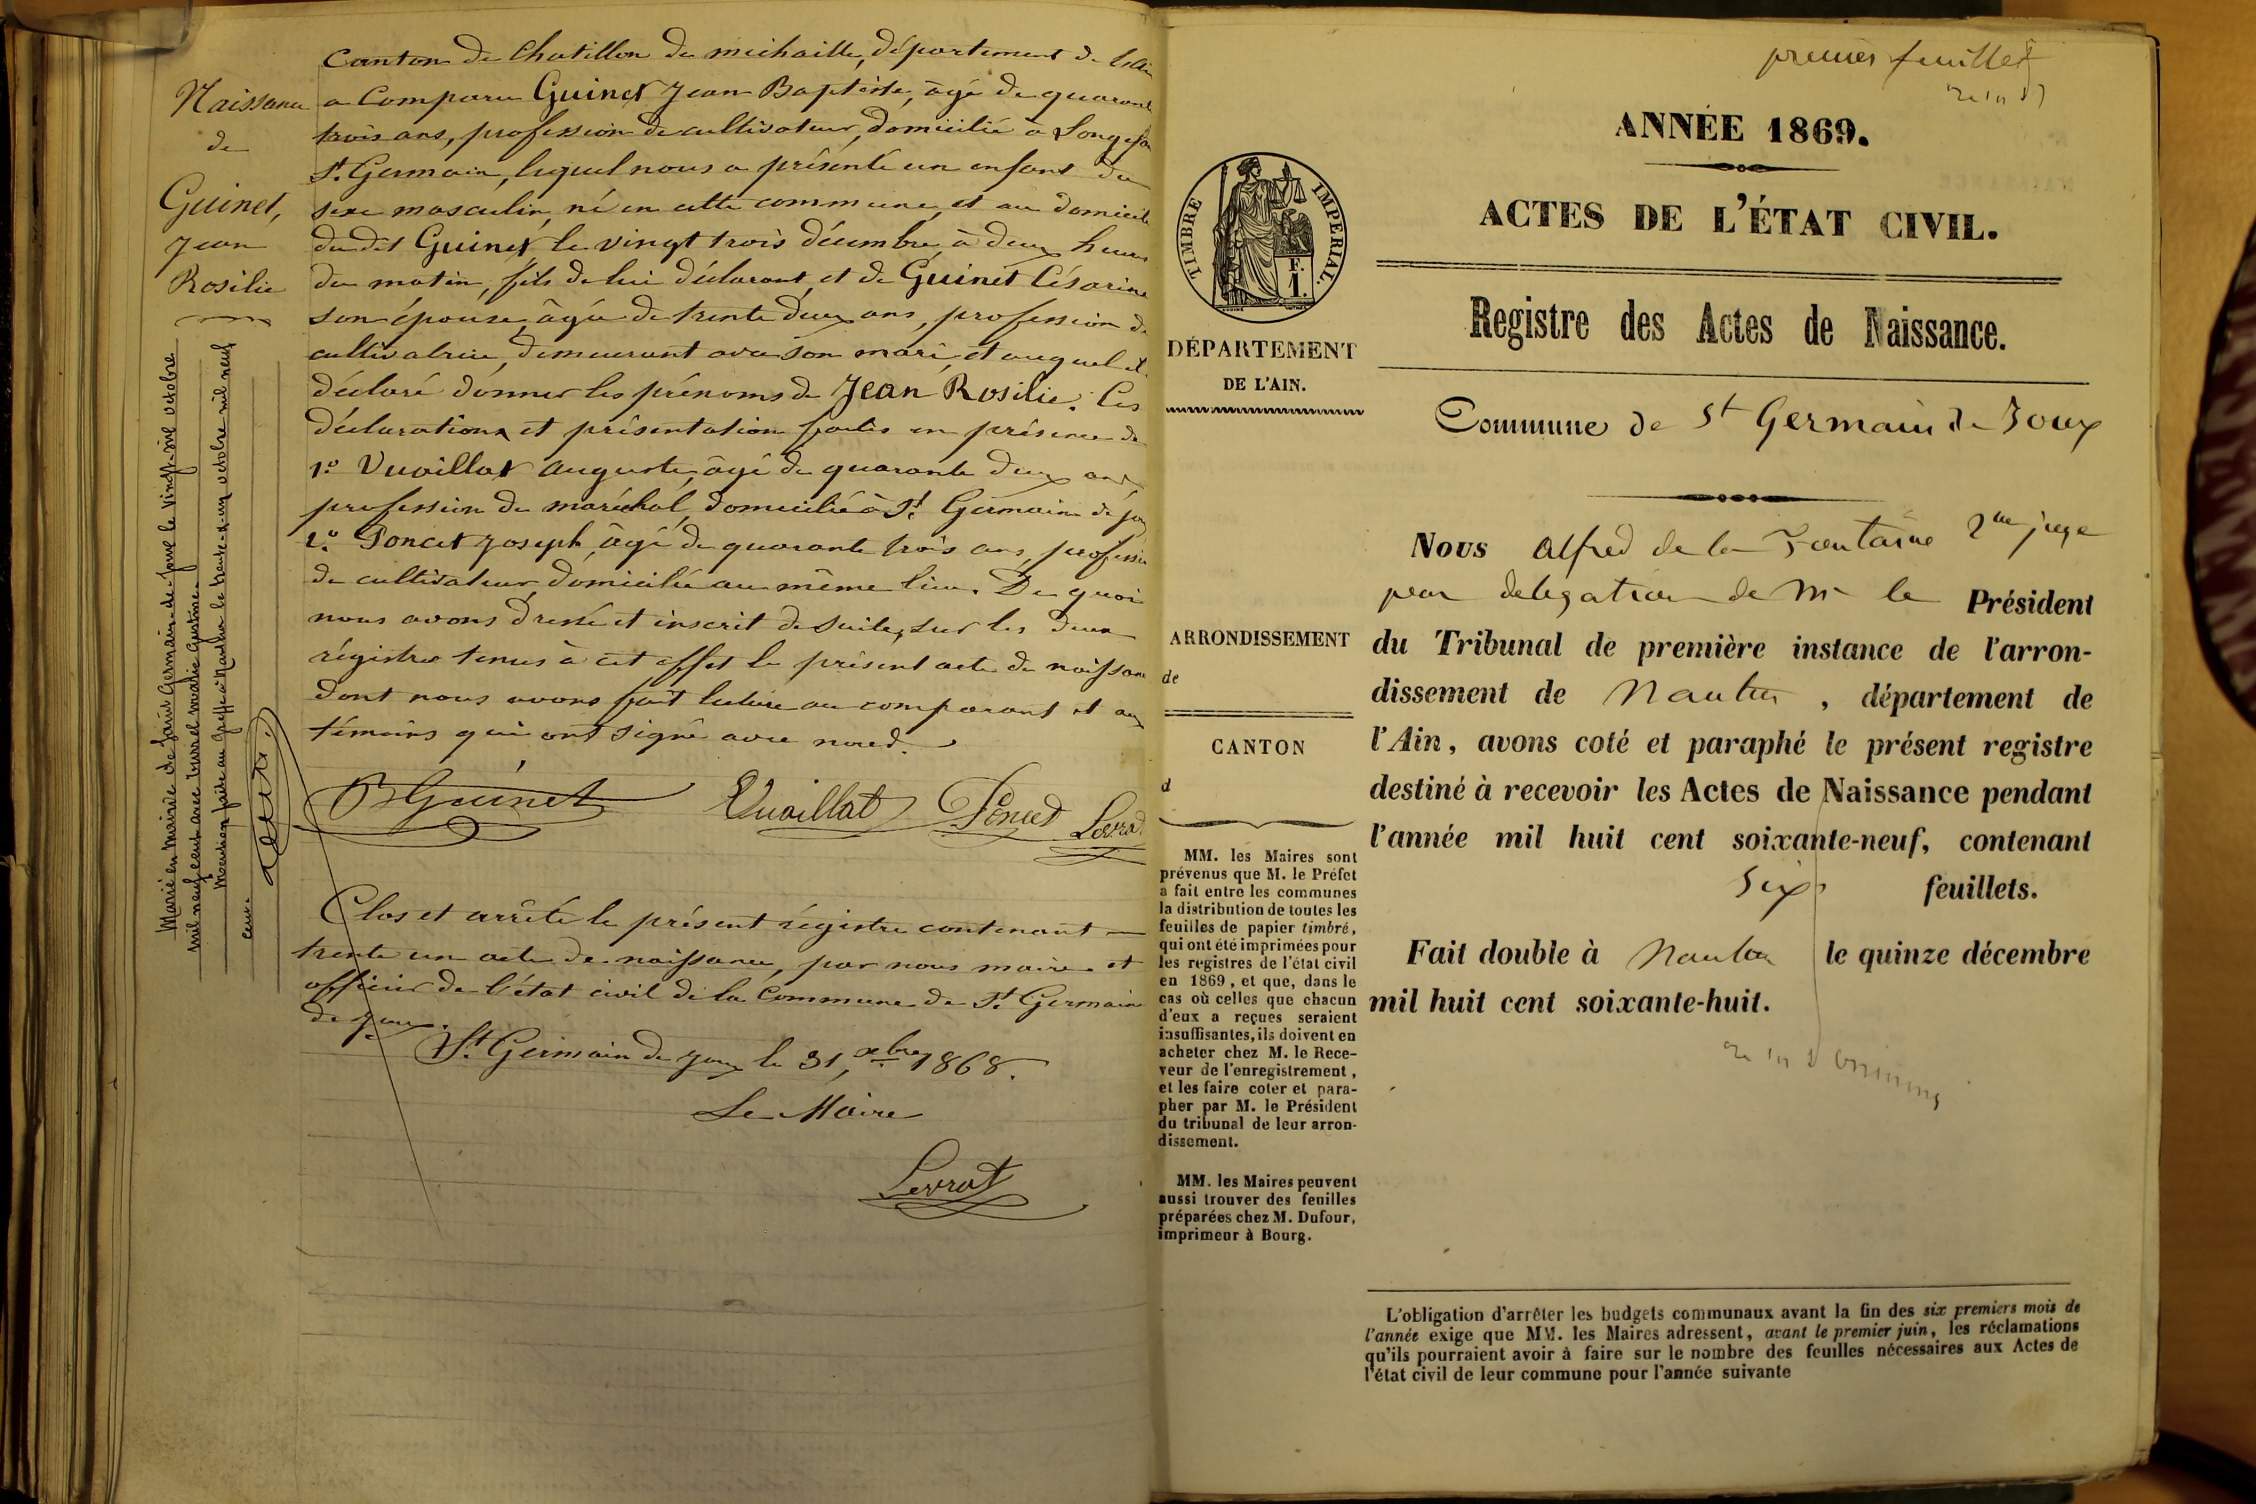 Canton de Chatillon de michaille, département de l'Ain
a Comparu Guinet Jean Baptiste, âgé de quarante
trois ans, profession de cultivateur, domicilié à
St. Germain, lequel nous a présenté un enfant du
sexe masculin, né en cette commune, et au domicile
du dit Guinet le vingt trois décembre, à deux heures
du matin, fils de lui déclarant, et de Guinet Césarine
son épouse, âgée de trente deux ans, profession de
cultivatrice, demeurant avec son mari, et auquel il a
déclaré donner les prénoms de Jean Rosilie. Ces
déclarations et présentation faites en présence de
1º Vuaillat auguste, âgé de quarante deux ans,
profession de maréchal, domicilié à St Germain de joux
2º Poncet Joseph, âgé de quarante trois ans, profession
de cultivateur, domicilié au même lieu. De quoi
nous avons dressé et inscrit de suite, sur les deux
régistres tenus à cet effet le présent acte de naissance
dont nous avons fait lecture au comparant et aux
témoins qui ont signé avec nous.
B Guinet Vuaillat Poncet Levrat
Naissance
de
Guinet,
Jean
Rosilie
Marié en mairie de Saint Germain-de-Joux le vingt-six octobre
mil neuf cent avec
Mention faite au Greffe à Nantua le trente-et-un octobre mil neuf
cent.
Clos et arrêté le présent régistre contenant
trente un actes de naissance, par nous maire et
officier de l'état civil de la Commune de St Germain
de Joux.
St Germain de Joux le 31, xbre 1868.
Le Maire
Levrat
premier feuillet
ANNÉE 1869.
ACTES DE L'ÉTAT CIVIL.
TIMBRE IMPÉRIAL.
F.
1.
DÉPARTEMENT
DE L'AIN.
Registre des Actes de Naissance.
Commune de St Germain de Joux
Nous Alfred de la Fontaine juge
par délégation de Mr le Président
du Tribunal de première instance de l'arron-
dissement de Nantua, département de
l'Ain, avons coté et paraphé le présent registre
destiné à recevoir les Actes de Naissance pendant
l'année mil huit cent soixante-neuf, contenant
six feuillets.
Fait double à Nantua le quinze décembre
mil huit cent soixante-huit.
ARRONDISSEMENT
de
CANTON
d
MM. les Maires sont
prévenus que M. le Préfet
a fait entre les communes
la distribution de toutes les
feuilles de papier timbré,
qui ont été imprimées pour
les registres de l'état civil
en 1869, et que, dans le
cas où celles que chacun
d'eux a reçues seraient
insuffisantes, ils doivent en
acheter chez M. le Rece-
veur de l'enregistrement,
et les faire coter et para-
pher par M. le Président
du tribunal de leur arron-
dissement.
MM. les Maires peuvent
aussi trouver des feuilles
préparées chez M. Dufour,
imprimeur à Bourg.
L'obligation d'arrêter les budgets communaux avant la fin des six premiers mois de
l'année exige que MM. les Maires adressent, avant le premier juin, les réclamations
qu'ils pourraient avoir à faire sur le nombre des feuilles nécessaires aux Actes de
l'état civil de leur commune pour l'année suivante